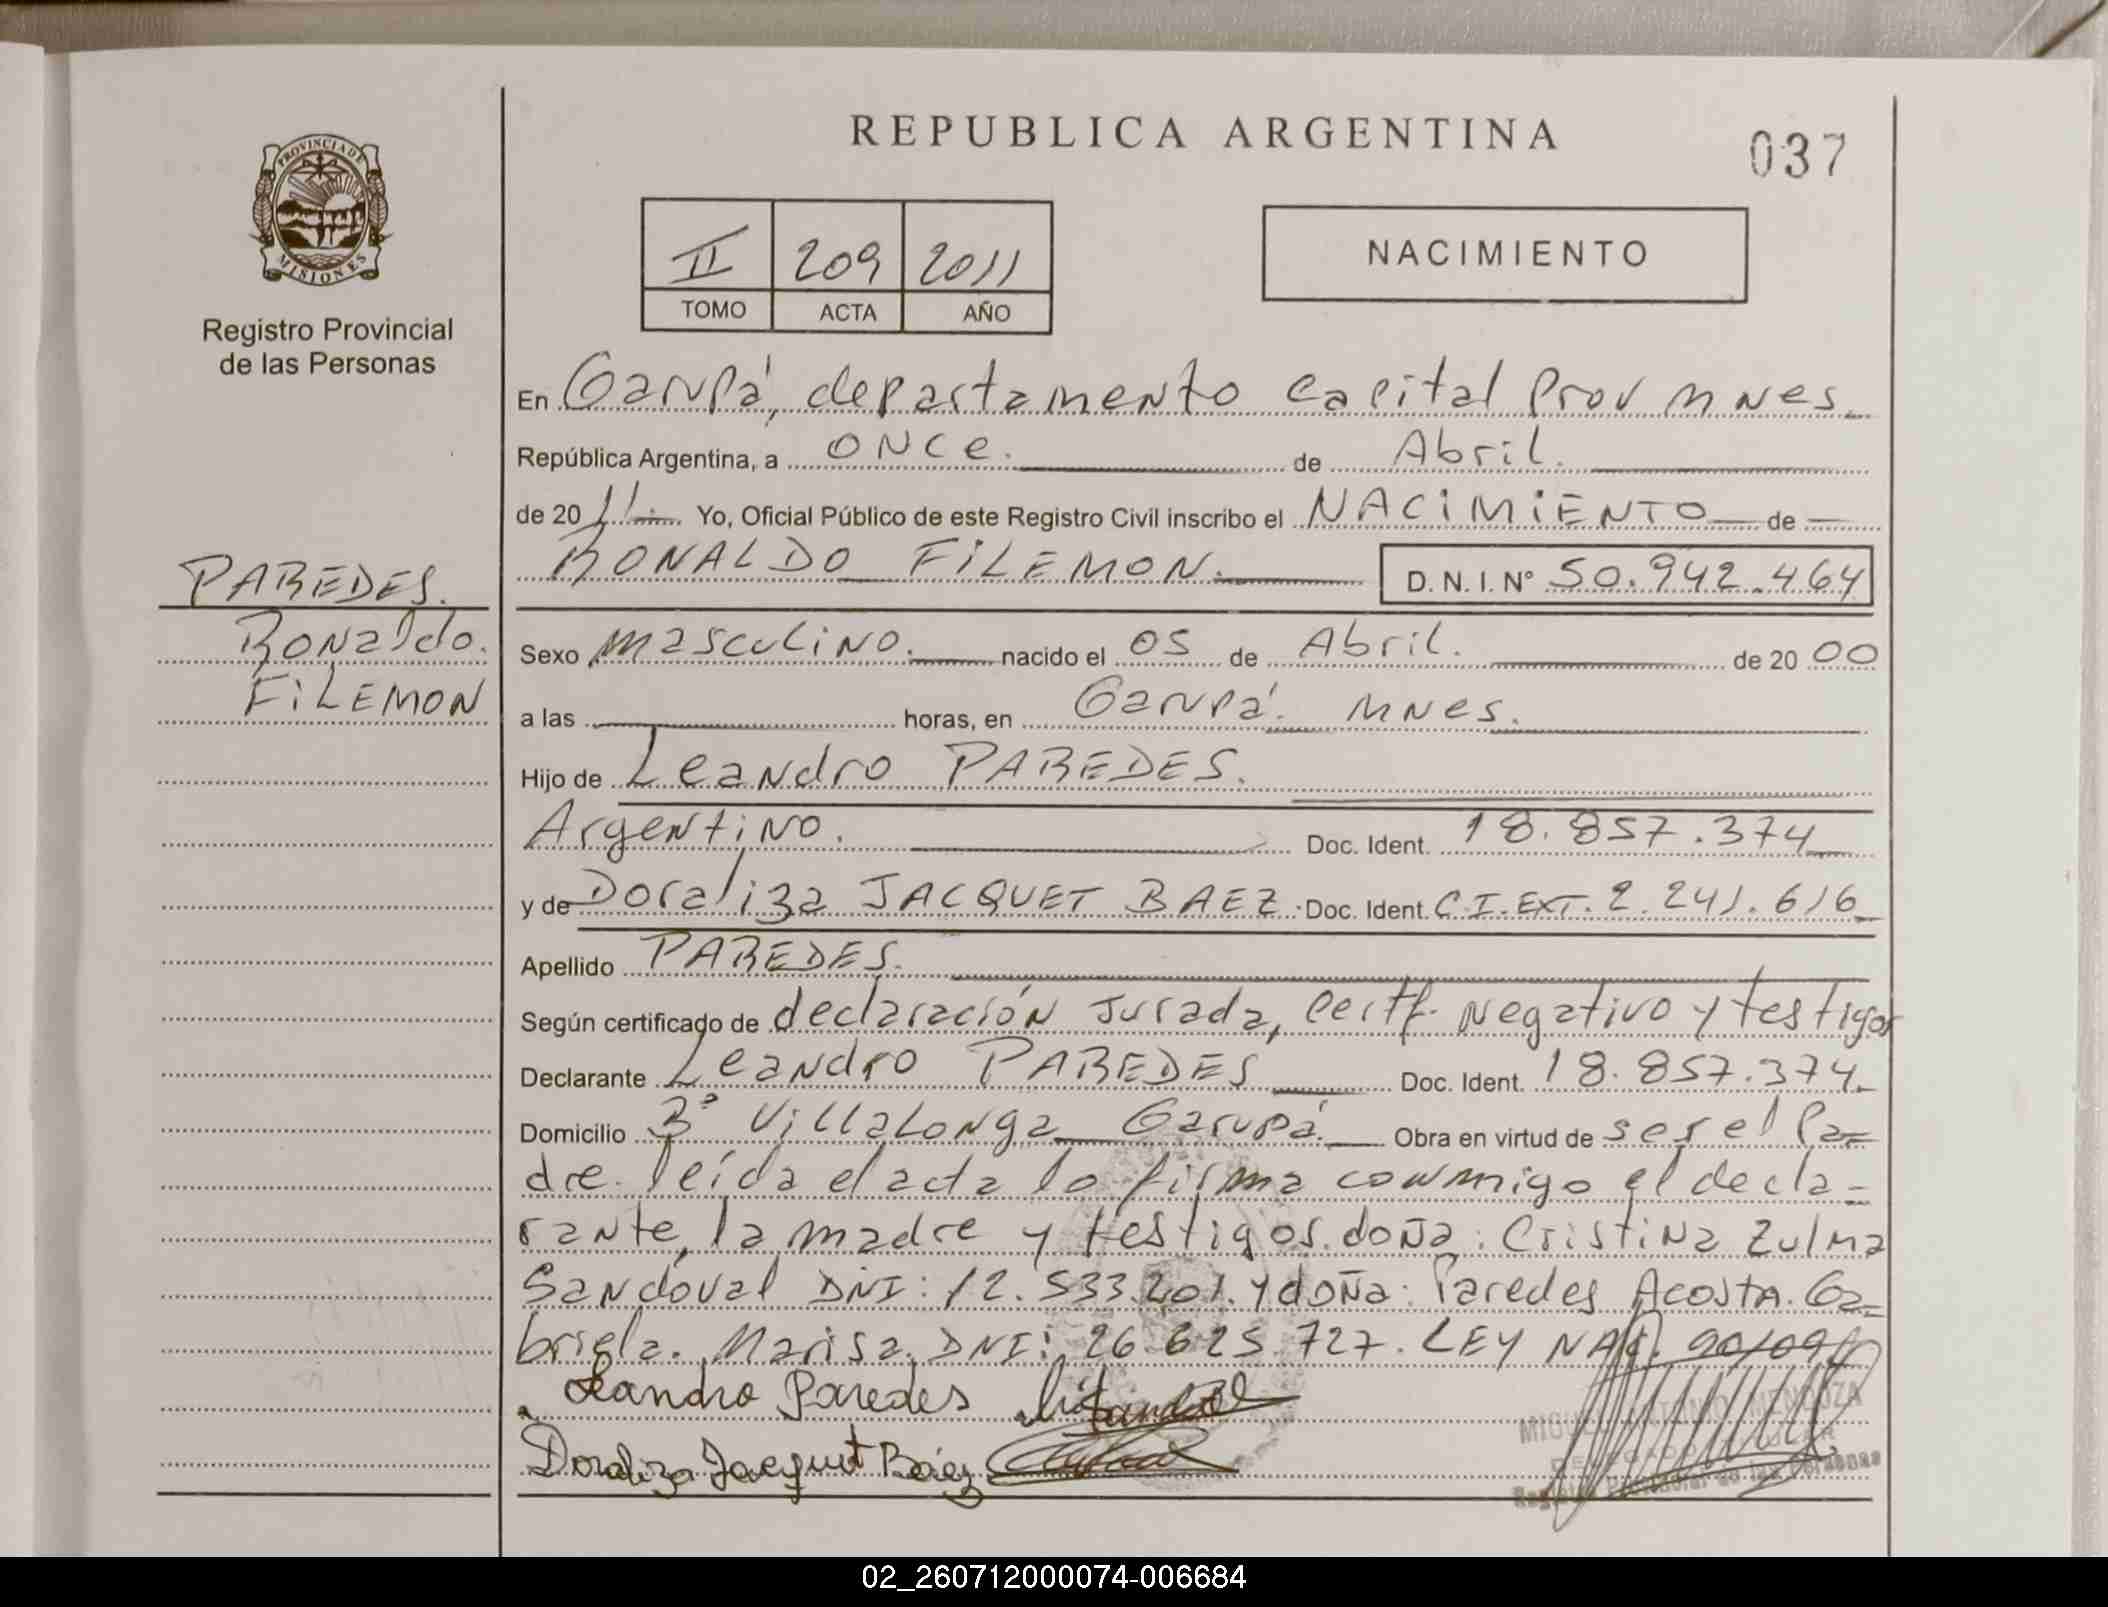 PROVINCIA DE
MISIONES
Registro Provincial
de las Personas
PAREDES.
Ronaldo.
FiLEMON
REPUBLICA ARGENTINA
037
II 209 2011
TOMO ACTA AÑO
NACIMIENTO
En Garupá, departamento Capital Prov Mnes
República Argentina, a once. de Abril.
de 2011 Yo, Oficial Público de este Registro Civil inscribo el NACiMiENTO de
RONALDO FiLEMON. D. N. I. N° 50.942.464
Sexo masculino. nacido el 05 de Abril. de 2000
a las horas, en Garupá. Mnes.
Hijo de Leandro PAREDES.
Argentino. Doc. Ident. 18.857.374
y de Doraliza JACQUET BAEZ. Doc. Ident. C.I.EXT. 2.241.616
Apellido PAREDES.
Según certificado de declaración Jurada, Certf. Negativo y testigos
Declarante Leandro PAREDES Doc. Ident. 18.857.374
Domicilio B° ViLLaLonga Garupá. Obra en virtud de ser el Pa=
dre. leída el acta lo firma conmigo el decla-
rante, la madre y testigos. doña: Cristina Zulma
Sandoval DNI: 12.533.201. y doña: Paredes Acosta. Ga=
briela. Marisa. DNI: 26.625.727. LEY NAC.
Leandro Paredes
Doraliza Jacquet Báez
MIGUEL ANTONIO MENDOZA
DELEGADO TITULAR
Registro Provincial de las Personas
02_260712000074-006684